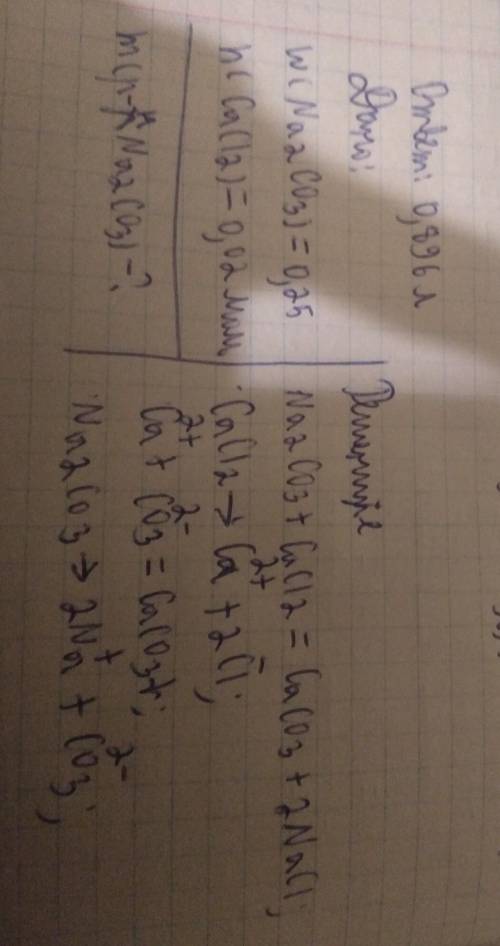 Ответ: 0,896 л
Дано:
w(Na2CO3) = 0,25
n(CaCl2) = 0,02 моль
m(р-н Na2CO3) - ?
Na2CO3 + CaCl2 = CaCO3 + 2NaCl;
CaCl2 → Ca²⁺ + 2Cl⁻;
Ca²⁺ + CO3²⁻ = CaCO3↓;
Na2CO3 → 2Na⁺ + CO3²⁻;